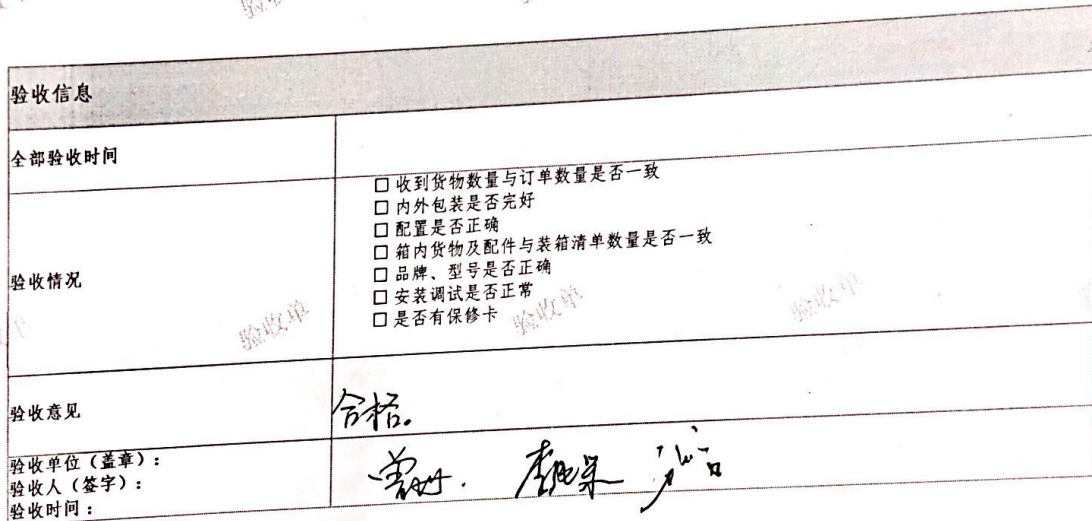 验收单
验收信息
全部验收时间
验收情况
□ 收到货物数量与订单数量是否一致
□ 内外包装是否完好
□ 配置是否正确
□ 箱内货物及配件与装箱清单数量是否一致
□ 品牌、型号是否正确
□ 安装调试是否正常
□ 是否有保修卡
验收单 验收单 验收单
验收意见
合格。
验收单位（盖章）：
验收人（签字）：
验收时间：